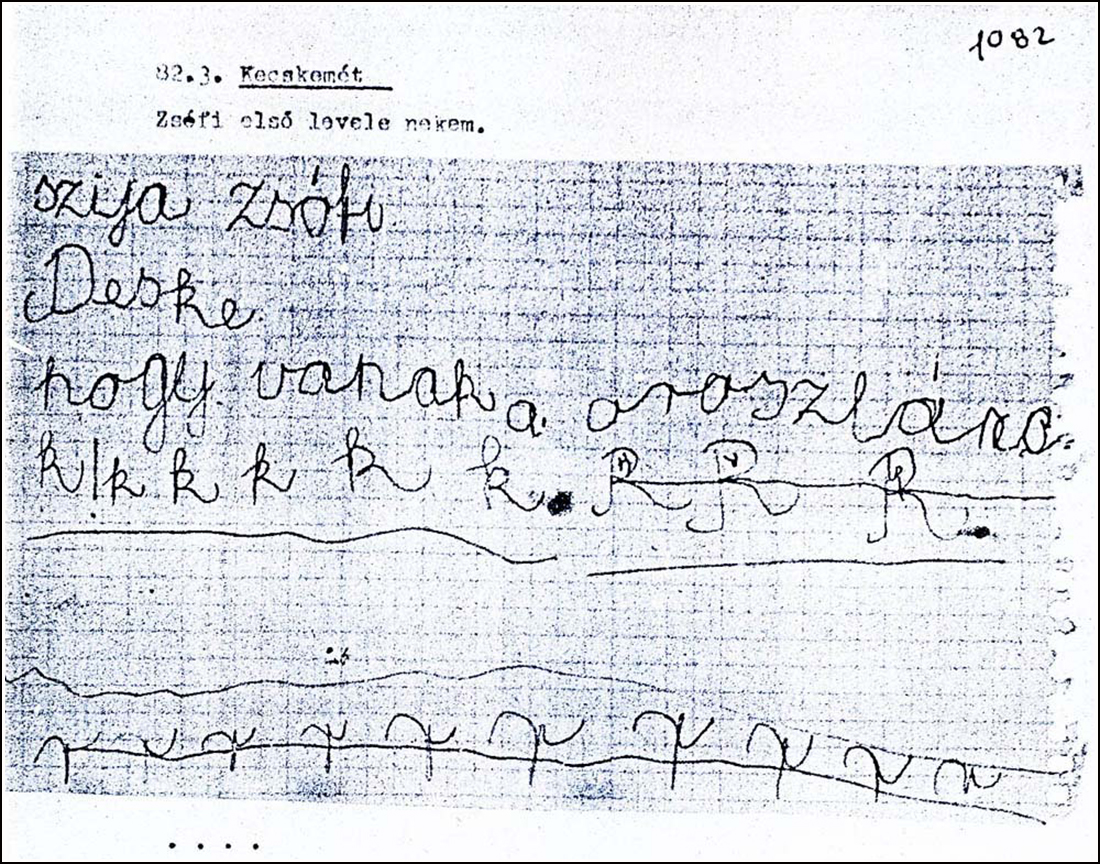 1082
82.3. Kecskemét
Zsófi első levele nekem.
szija Zsófi
Deske
hogy vanak a oroszláno
k!k k k k k. R R R.
....